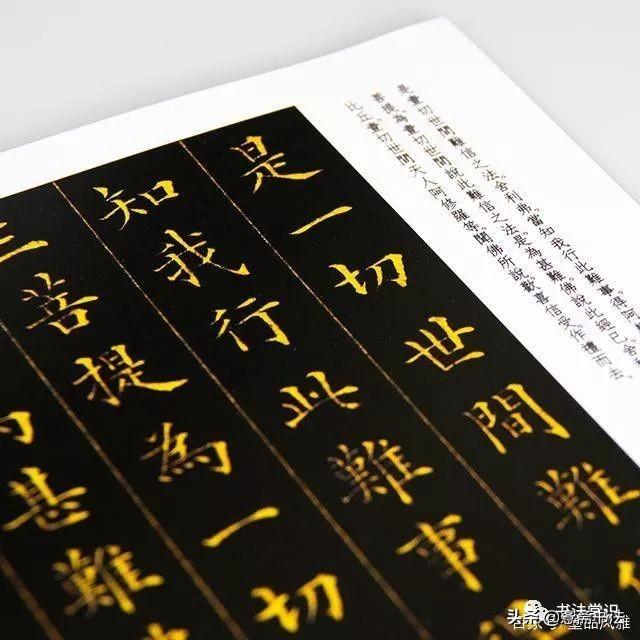 是一切世間難信之法舍利弗當知我行此難事得
菩提為一切世間說此難信之法是為甚難佛說此經已舍
比丘一切世間天人阿修羅等聞佛所說歡喜信受作禮而去
是一切世間難
知我行此難事
三菩提為一切
甚難
书法常识